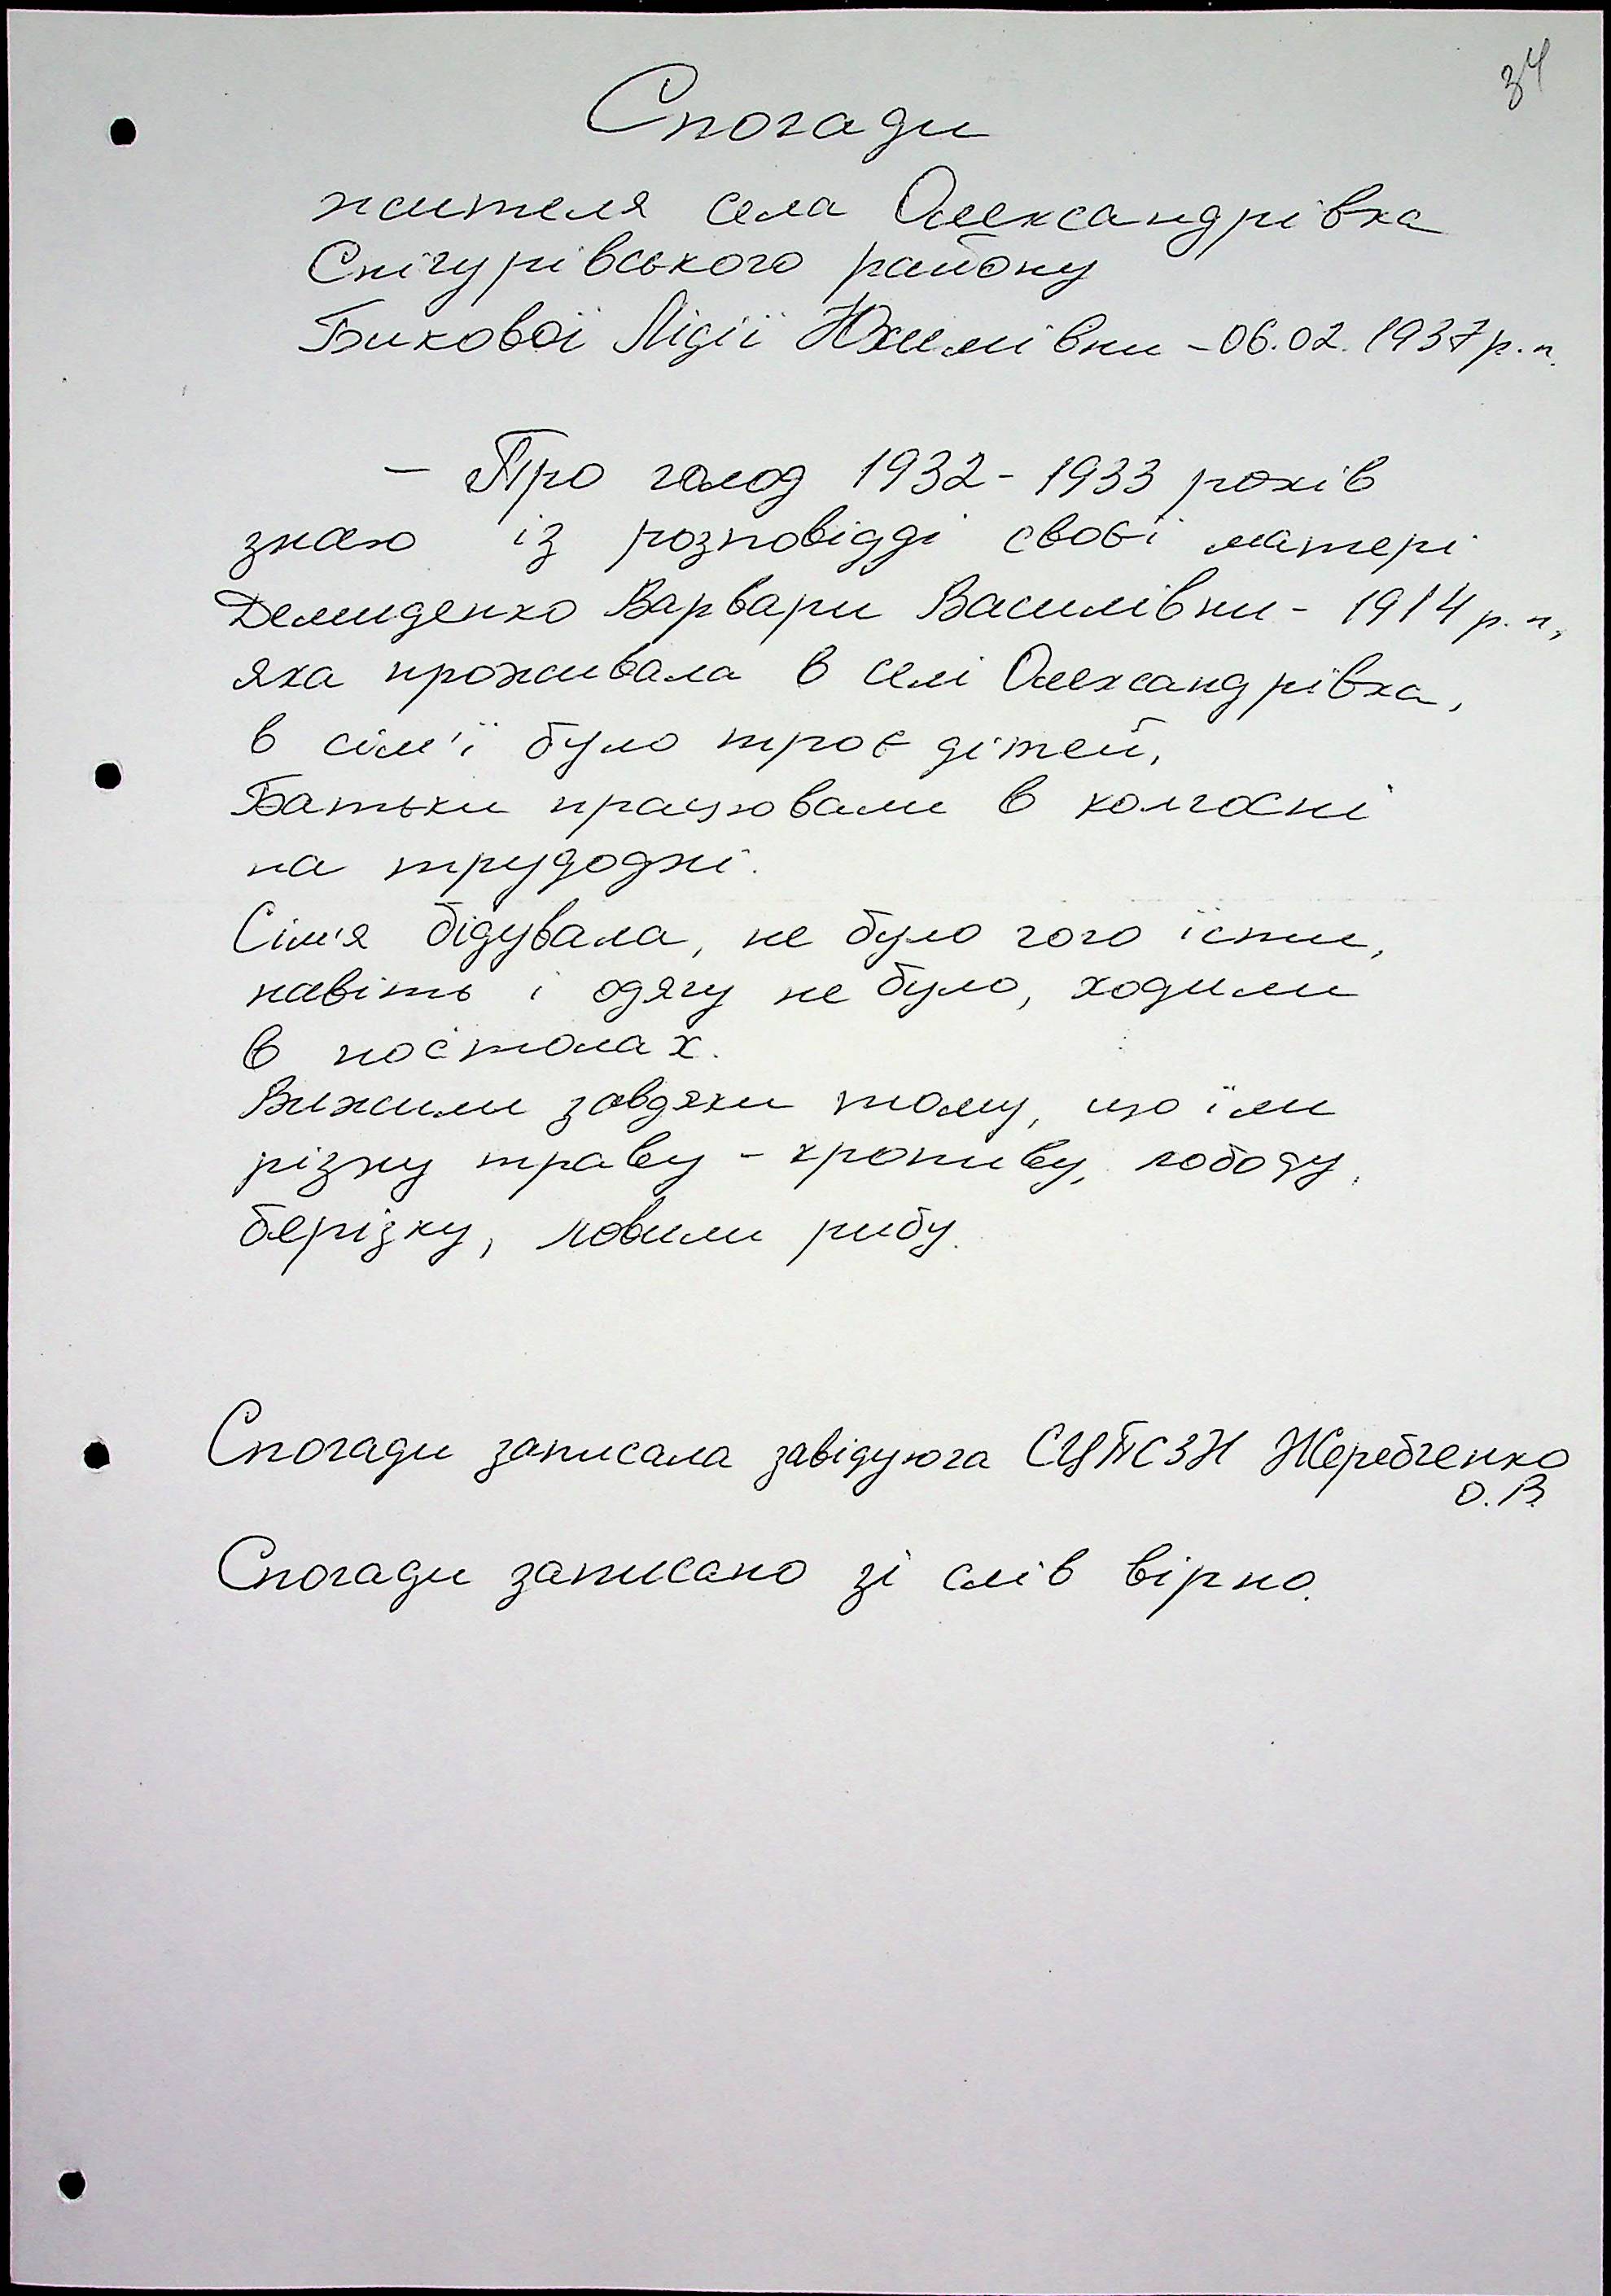 34
Спогади
жителя села Олександрівка
Снігурівського району
Бикової Лідії Юхимівни - 06.02.1937 р.н.
- Про голод 1932 - 1933 років
знаю із розповідді своєї матері
Демиденко Варвари Василівни - 1914 р.н,
яка проживала в селі Олександрівка,
в сім'ї було троє дітей,
Батьки працювали в колгоспі
на трудодні.
Сім'я бідувала, не було чого їсти,
навіть і одягу не було, ходили
в постолах.
Вижили завдяки тому, що їли
різну траву - кропиву, лободу,
берізку, ловили рибу.
Спогади записала завідуюча СЦПСЗН Жеребченко
О.В.
Спогади записано зі слів вірно.